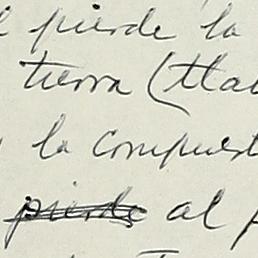 l pierde la
tierra (tla
la compuest
pierde al p